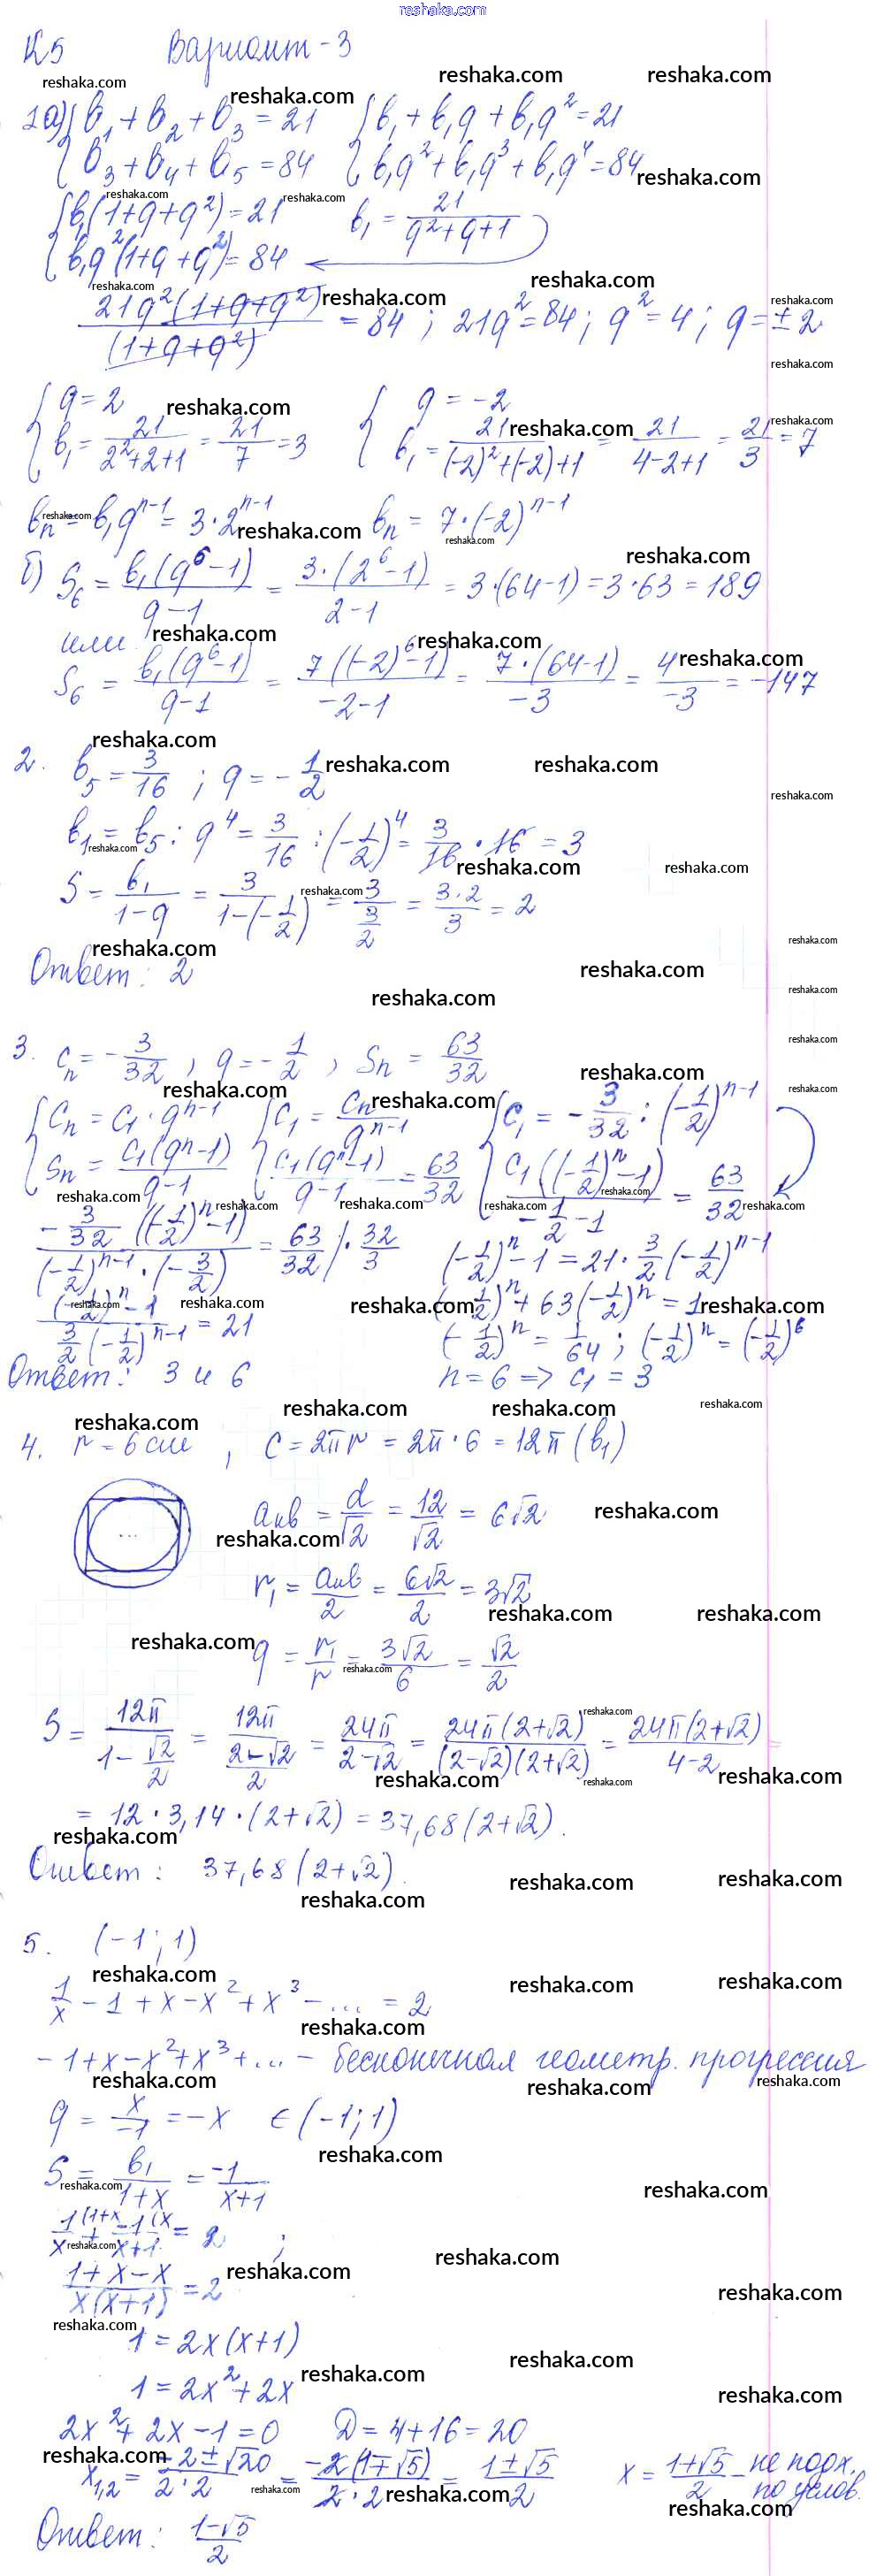 reshaka.com
К5 Вариант-3
1а) { b₁ + b₂ + b₃ = 21 { b₁ + b₁q + b₁q² = 21
{ b₃ + b₄ + b₅ = 84 { b₁q² + b₁q³ + b₁q⁴ = 84
{ b₁(1+q+q²) = 21 b₁ = 21/(q²+q+1)
{ b₁q²(1+q+q²) = 84 ←
21q²(1+q+q²)/(1+q+q²) = 84 ; 21q² = 84 ; q² = 4 ; q = ±2
{ q = 2 { q = -2
{ b₁ = 21/(2²+2+1) = 21/7 = 3 { b₁ = 21/((-2)²+(-2)+1) = 21/(4-2+1) = 21/3 = 7
bₙ = b₁qⁿ⁻¹ = 3·2ⁿ⁻¹ bₙ = 7·(-2)ⁿ⁻¹
б) S₆ = b₁(q⁶-1)/(q-1) = 3·(2⁶-1)/(2-1) = 3·(64-1) = 3·63 = 189
или
S₆ = b₁(q⁶-1)/(q-1) = 7((-2)⁶-1)/(-2-1) = 7·(64-1)/(-3) = 4 /(-3) = -147
2. b₅ = 3/16 ; q = -1/2
b₁ = b₅ : q⁴ = 3/16 : (-1/2)⁴ = 3/16 · 16 = 3
S = b₁/(1-q) = 3/(1-(-1/2)) = 3/(3/2) = 3·2/3 = 2
Ответ: 2
3. cₙ = -3/32 , q = -1/2 , Sₙ = 63/32
{ cₙ = c₁·qⁿ⁻¹ { c₁ = cₙ/qⁿ⁻¹ { c₁ = -3/32 : (-1/2)ⁿ⁻¹
{ Sₙ = c₁(qⁿ-1)/(q-1) { c₁(qⁿ-1)/(q-1) = 63/32 { c₁((-1/2)ⁿ-1)/(-1/2-1) = 63/32
-3/32((-1/2)ⁿ-1)/((-1/2)ⁿ⁻¹·(-3/2)) = 63/32 |· 32/3 (-1/2)ⁿ-1 = 21·3/2(-1/2)ⁿ⁻¹
((-1/2)ⁿ-1)/(3/2(-1/2)ⁿ⁻¹) = 21 (-1/2)ⁿ + 63(-1/2)ⁿ = 1
(-1/2)ⁿ = 1/64 ; (-1/2)ⁿ = (-1/2)⁶
Ответ: 3 и 6 n = 6 => c₁ = 3
4. r = 6 см , C = 2πr = 2π·6 = 12π (b₁)
aкв = d/√2 = 12/√2 = 6√2
r₁ = aкв/2 = 6√2/2 = 3√2
q = r₁/r = 3√2/6 = √2/2
S = 12π/(1-√2/2) = 12π/((2-√2)/2) = 24π/(2-√2) = 24π(2+√2)/((2-√2)(2+√2)) = 24π(2+√2)/(4-2) =
= 12·3,14·(2+√2) = 37,68(2+√2).
Ответ: 37,68(2+√2).
5. (-1; 1)
1/x - 1 + x - x² + x³ - ... = 2
-1+x-x²+x³+... - бесконечная геометр. прогрессия
q = x/-1 = -x ∈ (-1; 1)
S = b₁/(1+x) = -1/(x+1)
1/x (1+x + -1/(x+1) (x = 2 ;
(1+x-x)/(x(x+1)) = 2
1 = 2x(x+1)
1 = 2x² + 2x
2x² + 2x - 1 = 0 D = 4+16 = 20
x₁,₂ = (-2±√20)/(2·2) = -2(1∓√5)/(2·2) = (1±√5)/2 x = (1+√5)/2 - не подх. по услов.
Ответ: (1-√5)/2